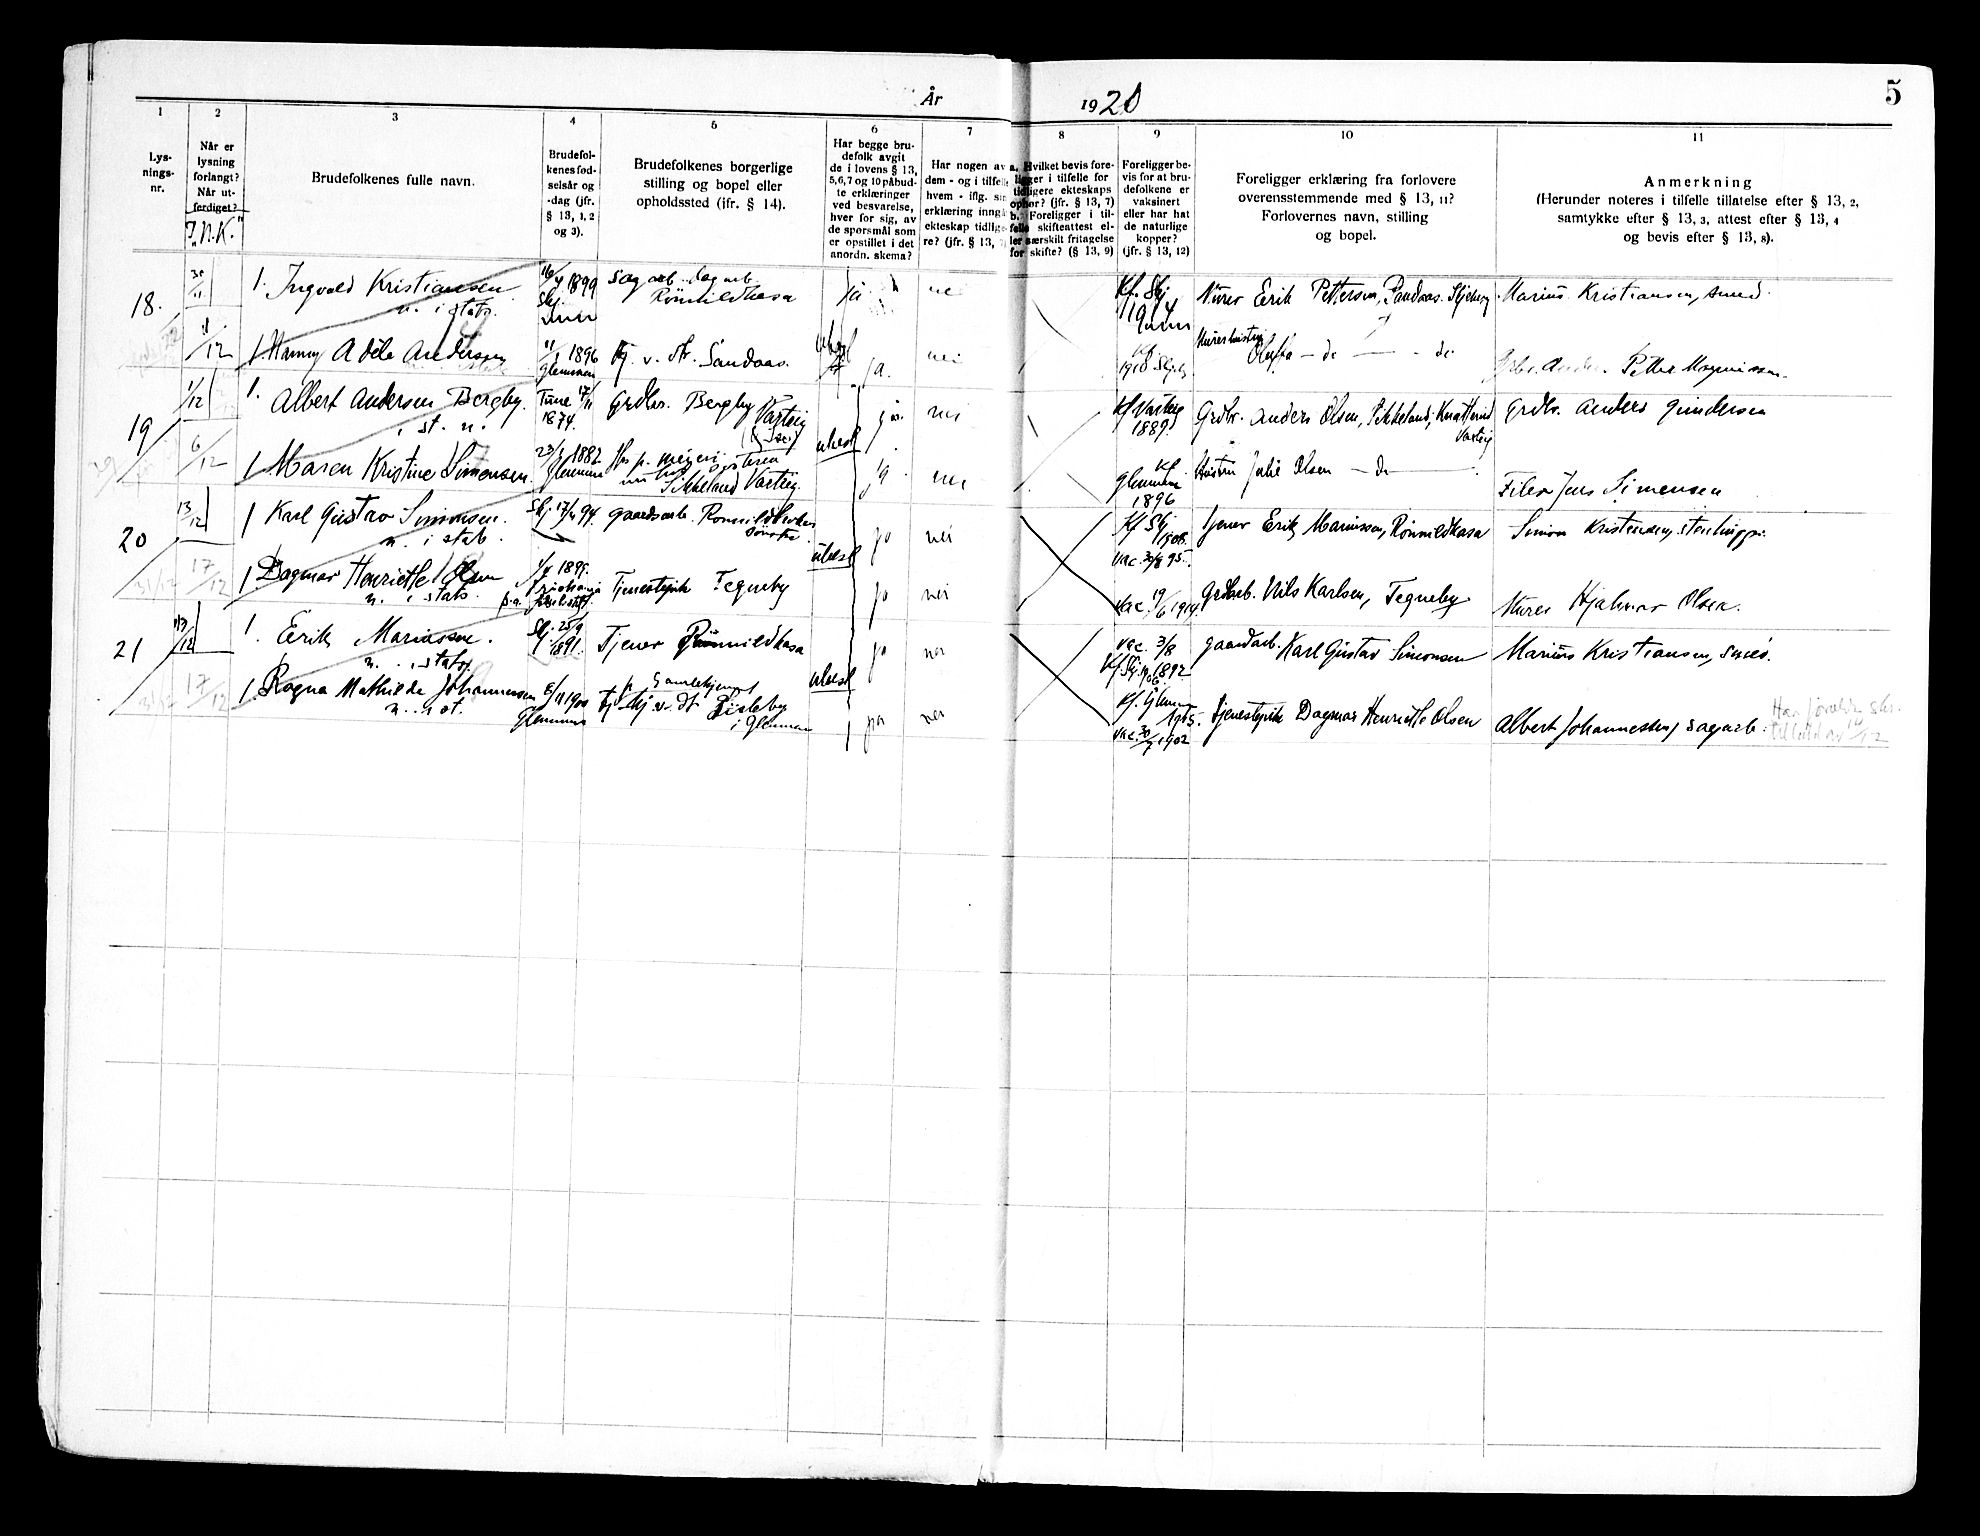 År 1920
5
1
2
3
4
5
6
7
8
9
10
11
Lys-
nings-
nr.
Når er
lysning
forlangt?
Når ut-
ferdiget?
Brudefolkenes fulle navn.
Brudefol-
kenes fød-
selsår og
-dag (jfr.
§ 13, 1, 2
og 3).
Brudefolkenes borgerlige
stilling og bopel eller
opholdssted (ifr. § 14).
Har begge bru-
defolk avgit
de i lovens § 13,
5, 6, 7 og 10 påbud-
te erklæringer
ved besvarelse,
hver for sig, av
de spørsmål som
er opstillet i det
anordn. skema?
Har nogen av
dem - og i tilfelle
hvem - iflg. sin
erklæring inngå
ekteskap tidlige-
re? (jfr. § 13, 7)
a. Hvilket bevis fore-
ligger i tilfelle for
tidligere ekteskaps
ophør? (jfr. § 13, 7)
b. Foreligger i til-
felle skifteattest el-
ler særskilt fritagelse
for skifte? (§ 13, 9)
Foreligger be-
vis for at bru-
defolkene er
vaksinert
eller har hat
de naturlige
kopper?
(jfr. § 13, 12)
Foreligger erklæring fra forlovere
overensstemmende med § 13, 11?
Forlovernes navn, stilling
og bopel.
Anmerkning
(Herunder noteres i tilfelle tillatelse efter § 13, 2,
samtykke efter § 13, 3, attest efter § 13, 4
og bevis efter § 13, 8).
18.
30/11
1. Ingvald Kristiansen
u. i stats.
1899
Skj.
Sagarb. dagarb.
Römildkasa
ja
nei
Kf. Skj.
1914
Murer Erik Pettersen, Sandaas. Skjeberg
Marius Kristiansen, smed.
11/12
1 Hanny Adéle Andersen
1896
Glemmen
v. str. Sandaas.
ja.
nei
1910 Skj.
Olufta - do - - do
Petter Magnussen.
19
1/12
1. Albert Andersen Bergby.
i st. u.
Tune 17/11
1874.
Grdbr. Bergby Varteig
ja.
nei
Kf Varteig
1889.
Grdbr. Anders Olsen, Sikkeland, Varteig
Grdbr. Anders Gundersen
6/12
1 Maren Kristine Simensen.
1882
Glemmen
ubesl
hos p. meieri
Sikkeland Varteig.
ja
nei
Kf.
Glemmen
1896
Hustru Julie Olsen - do -
Filer Jens Simensen
20
13/12
1 Karl Gustav Simonsen.
u. i stats.
Skj 94.
gaardsarb. Römildkasa
ja
nei
Kf Skj
1908.
vac. 30/8 95.
Tjener Erik Mariussen, Römildkasa
Simon Kristensen, stenhugger.
17/12
31/12
1 Dagmar Henriette Olsen
u. i stats.
1895.
ubesl
Tjenestepik Tegneby
ja
nei
vac. 19/6 1914.
Grdarb. Nils Karlsen, Tegneby
Murer Hjalmar Olsen.
21
13/12
1. Erik Mariussen.
u. i stats.
Skj. 25/9
1891.
Tjener Römildkasa
ja
nei
vac. 3/8
1892
Kf. Skj. 1906.
gaardarb. Karl Gustav Simonsen
Marius Kristiansen,
17/12
31/12
1 Ragna Mathilde Johannessen
u. i st.
1900
Glemmen
ubesl
hj. v. dt Pisleby
i Glemmen
ja
nei
Kf. Glemm.
1915.
vac. 30/7 1902
Tjenestepik Dagmar Henriette Olsen
Albert Johannessen, sagarb.